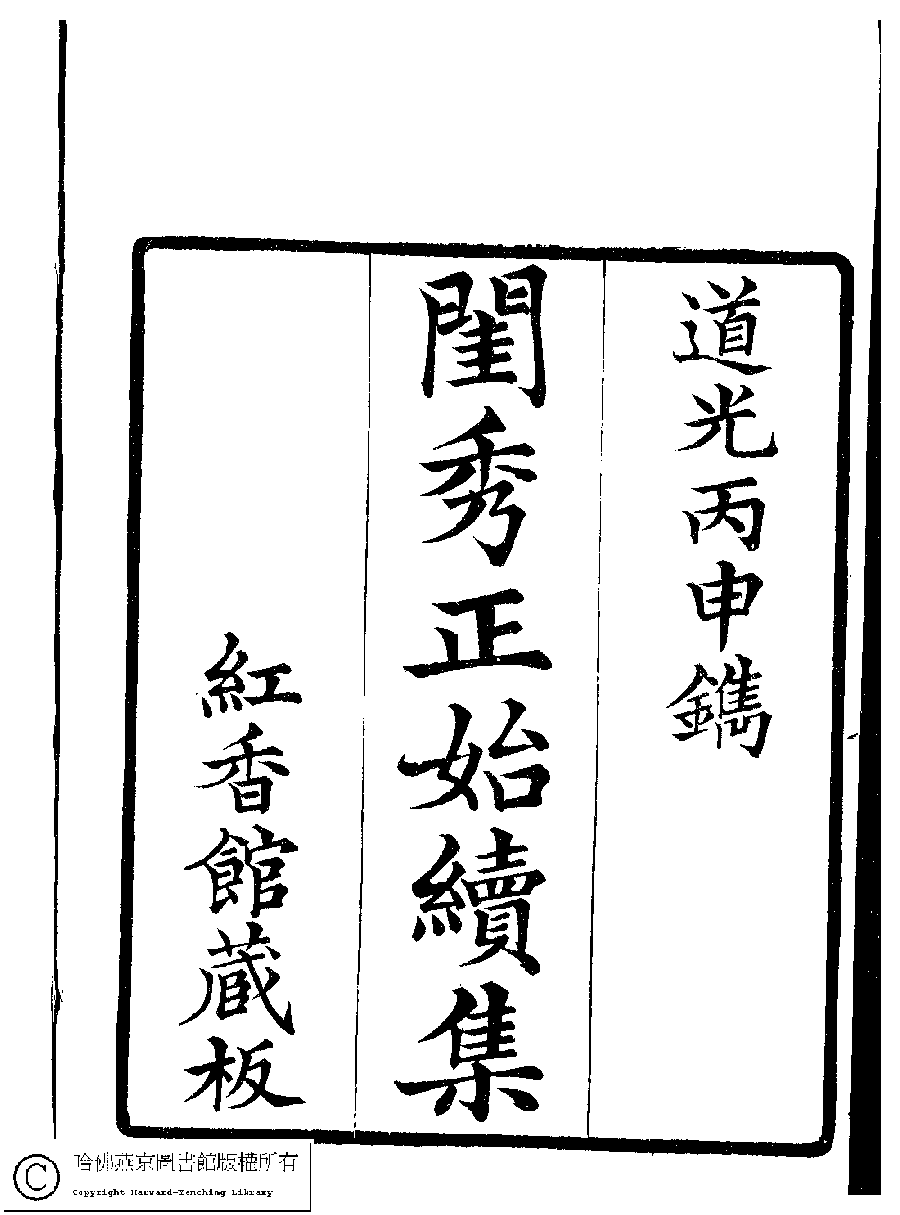 道光丙申鐫
閨秀正始續集
紅香館藏板
哈佛燕京圖書館版權所有
Copyright Harvard-Yenching Library